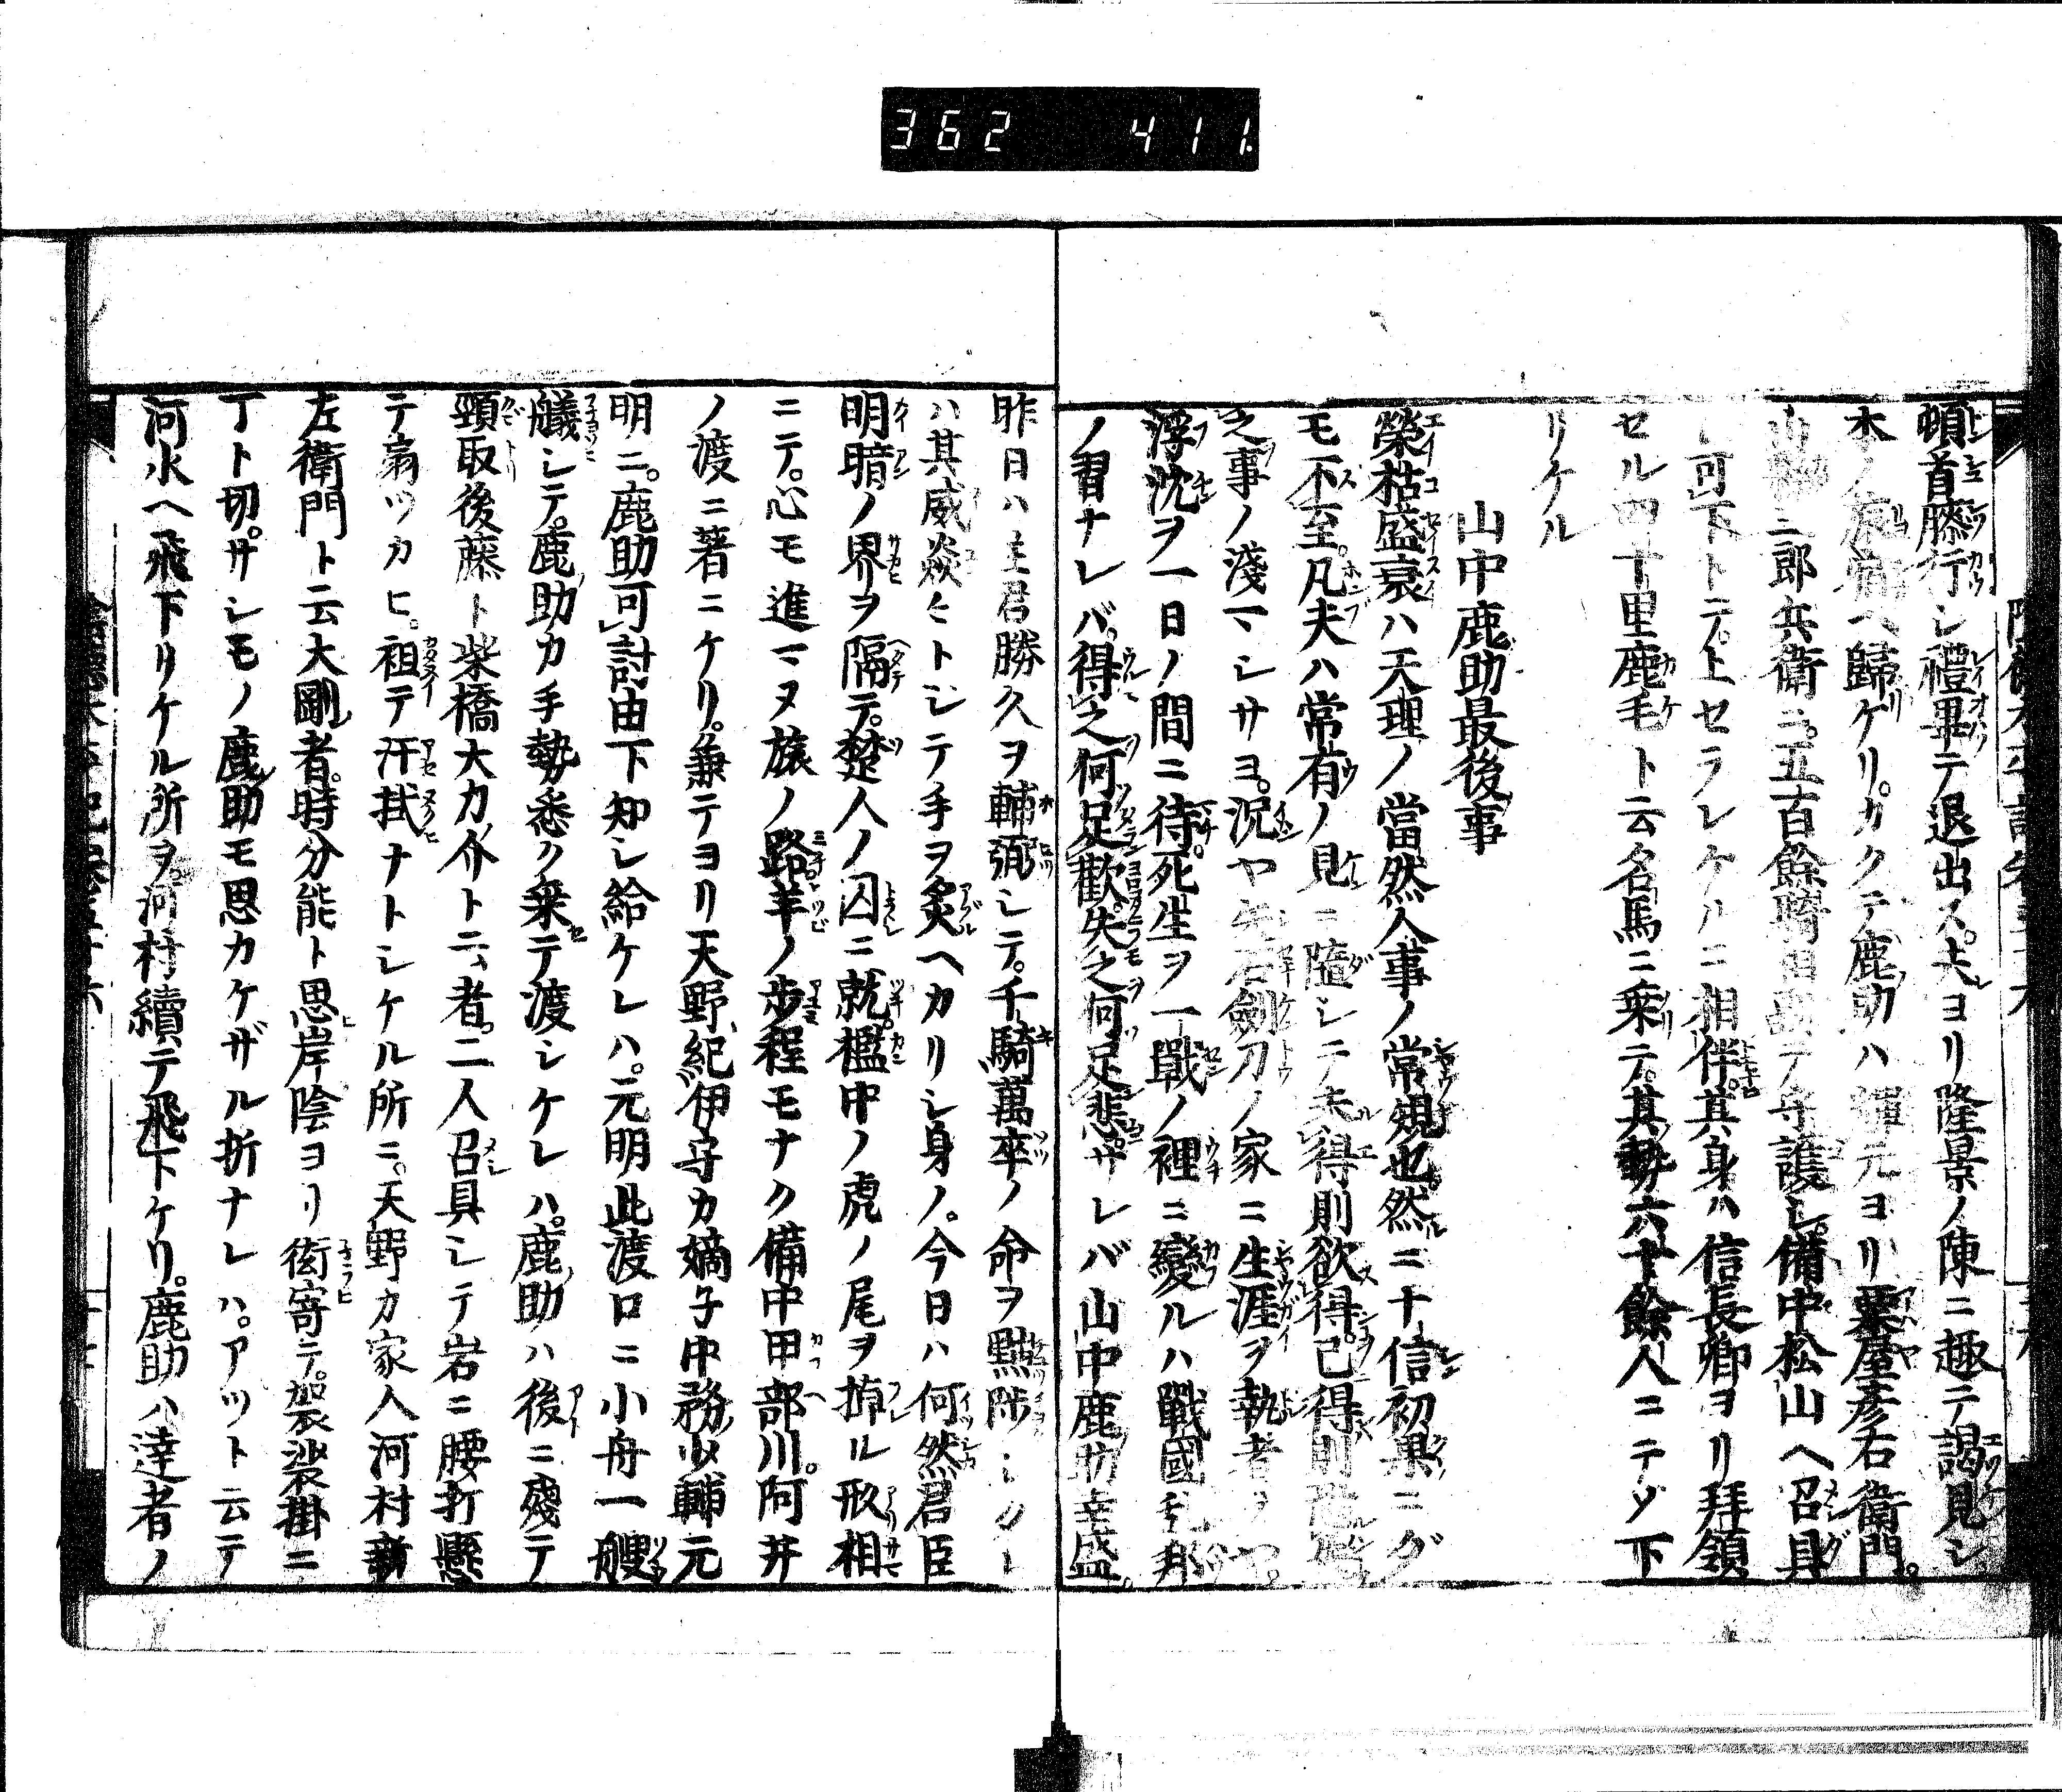 362 411.
頓首膝行シ禮畢テ退出ス。夫ヨリ隆景ノ陳ニ趣テ謁見シ
本ノ旅宿ヘ歸ケリ。カクテ鹿助ハ輝元ヨリ粟屋彦右衛門。
山縣三郎兵衛ニ。五百餘騎相副テ守護シ。備中松山ヘ召具
シ可下トテ。上セラレケルニ相伴。其身ハ信長卿ヨリ拜領
セル四十里鹿毛ト云名馬ニ乗テ。其勢六十餘人ニテゾ下
リケル
山中鹿助最後事
榮枯盛衰ハ天理ノ當然人事ノ常規也。然ニ十信初果ニダ
モ不至。凡夫ハ常有ノ見ニ隨シテ未得則欲得。已得則
之事ノ淺マシサヨ。況ヤ矢石劔刀ノ家ニ生涯ヲ執者ヲヤ。
浮沈ヲ一日ノ間ニ待。死生ヲ一戰ノ裡ニ變ルハ戰國
ノ習ナレバ。得之何足歡。失之何足悲。サレバ山中鹿助幸盛。
昨日ハ主君勝久ヲ輔弼シテ。千騎萬卒ノ命ヲ黜陟シカ
ハ其威焱々トシテ手ヲ炙ヘカリシ身ノ。今日ハ何然君臣
明暗ノ界ヲ隔テ。楚人ノ囚ニ就。檻中ノ虎ノ尾ヲ掉ル形相
ニテ。心モ進マヌ旅ノ路。羊ノ歩程モナク備中甲部川。阿井
ノ渡ニ著ニケリ。兼テヨリ天野紀伊守カ嫡子中務少輔元
明ニ。鹿助可討由下知シ給ケレハ。元明此渡ロニ小舟一艘
艤シテ。鹿助カ手勢悉ク乗テ渡シケレハ。鹿助ハ後ニ殘テ
頸取後藤ト柴橋大力介ト云者。二人召具シテ岩ニ腰打懸
テ扇ツカヒ。袒テ汗拭ナトシケル所ニ。天野カ家人河村新
左衛門ト云大剛者。時分能ト思岸陰ヨリ衒寄テ。袈裟掛ニ
丁ト切。サシモノ鹿助モ思カケザル折ナレハ。アツト云テ
河水ヘ飛下リケル所ヲ。河村續テ飛下ケリ。鹿助ハ達者ノ